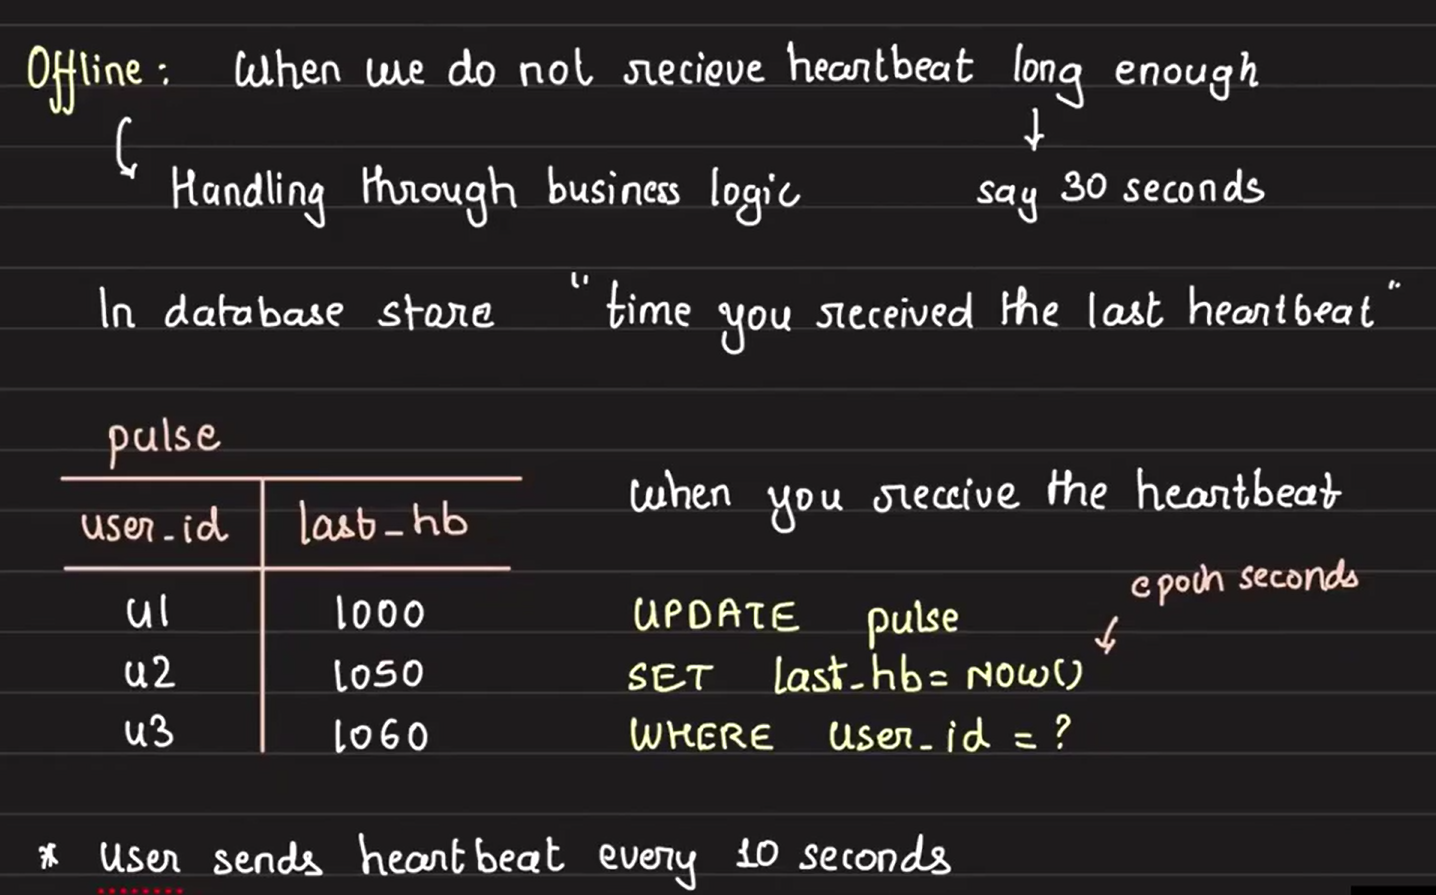 Offline : When we do not recieve heartbeat long enough
Handling through business logic say 30 seconds
In database store "time you received the last heartbeat"
pulse
user_id last_hb
u1 1000
u2 1050
u3 1060
When you receive the heartbeat
epoch seconds
UPDATE pulse
SET last_hb = NOW()
WHERE user_id = ?
* User sends heartbeat every 10 seconds